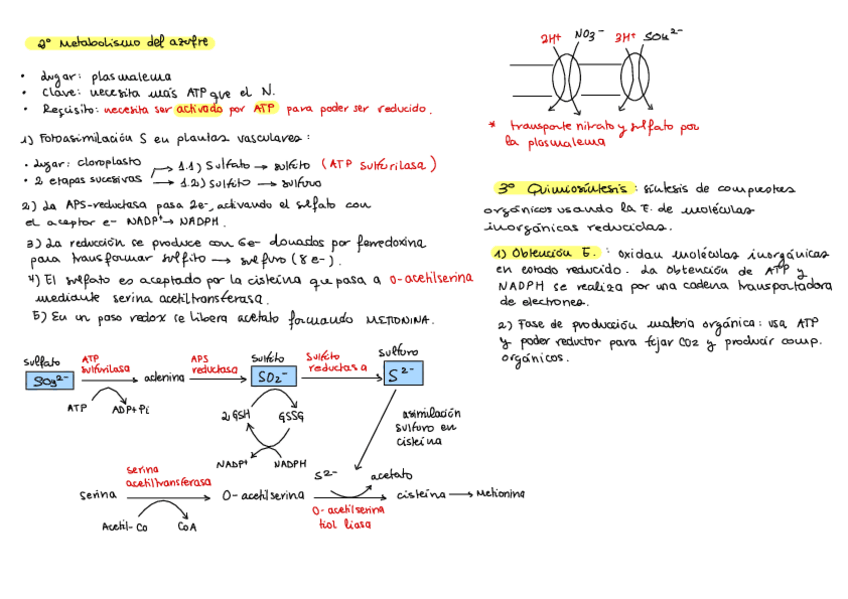 2º Metabolismo del azufre
• Lugar: plasmalema
• Clave: necesita más ATP que el N.
• Requisito: necesita ser activado por ATP para poder ser reducido.
1) Fotoasimilación S en plantas vasculares:
• Lugar: cloroplasto
• 2 etapas sucesivas
1.1) Sulfato → sulfito (ATP sulfurilasa)
1.2) Sulfito → sulfuro
2) La APS-reductasa pasa 2e-, activando el sulfato con
el aceptor e- NADP+→ NADPH.
3) La reducción se produce con 6e- donados por ferredoxina
para transformar sulfito → sulfuro (8 e-).
4) El sulfato es aceptado por la cisteína que pasa a O-acetilserina
mediante serina acetiltransferasa.
5) En un paso redox se libera acetato formando METIONINA.
sulfato
ATP
sulfurilasa
APS
reductasa
sulfito
Sulfito
reductasa
sulfuro
adenina
SO2-
S2-
ATP
ADP+Pi
2GSH
GSSG
asimilación
sulfuro en
cisteína
NADP+
NADPH
serina
acetiltransferasa
S2-
acetato
serina
O-acetilserina
cisteína → Metionina
Acetil-Co
CoA
O-acetilserina
tiol liasa
2H+
NO3-
3H+
SO42-
* transporte nitrato y sulfato por
la plasmalema
3º Quimiosíntesis: síntesis de compuestos
orgánicos usando la E. de moléculas
inorgánicas reducidas.
1) Obtención E.: oxidan moléculas inorgánicas
en estado reducido. La obtención de ATP y
NADPH se realiza por una cadena transportadora
de electrones.
2) Fase de producción materia orgánica: usa ATP
y poder reductor para fijar CO2 y producir comp.
orgánicos.